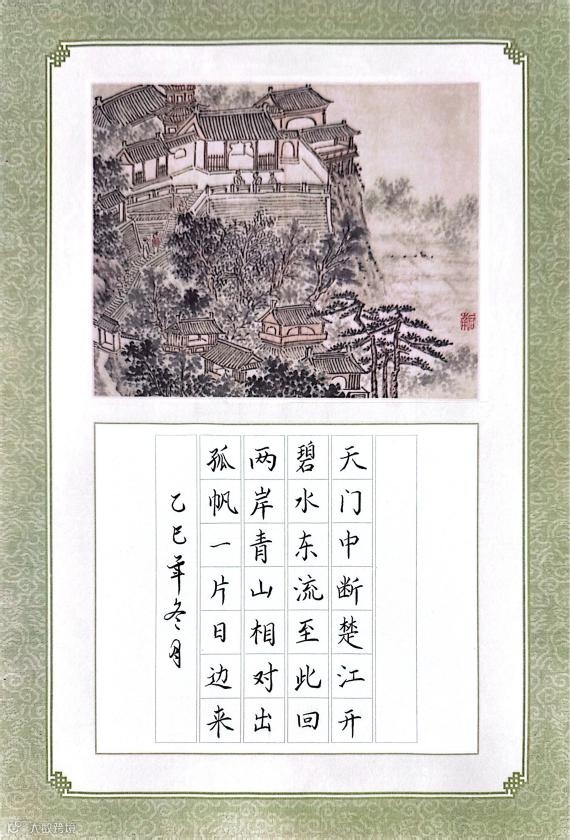 天门中断楚江开
碧水东流至此回
两岸青山相对出
孤帆一片日边来
乙巳年冬月
大数跨境